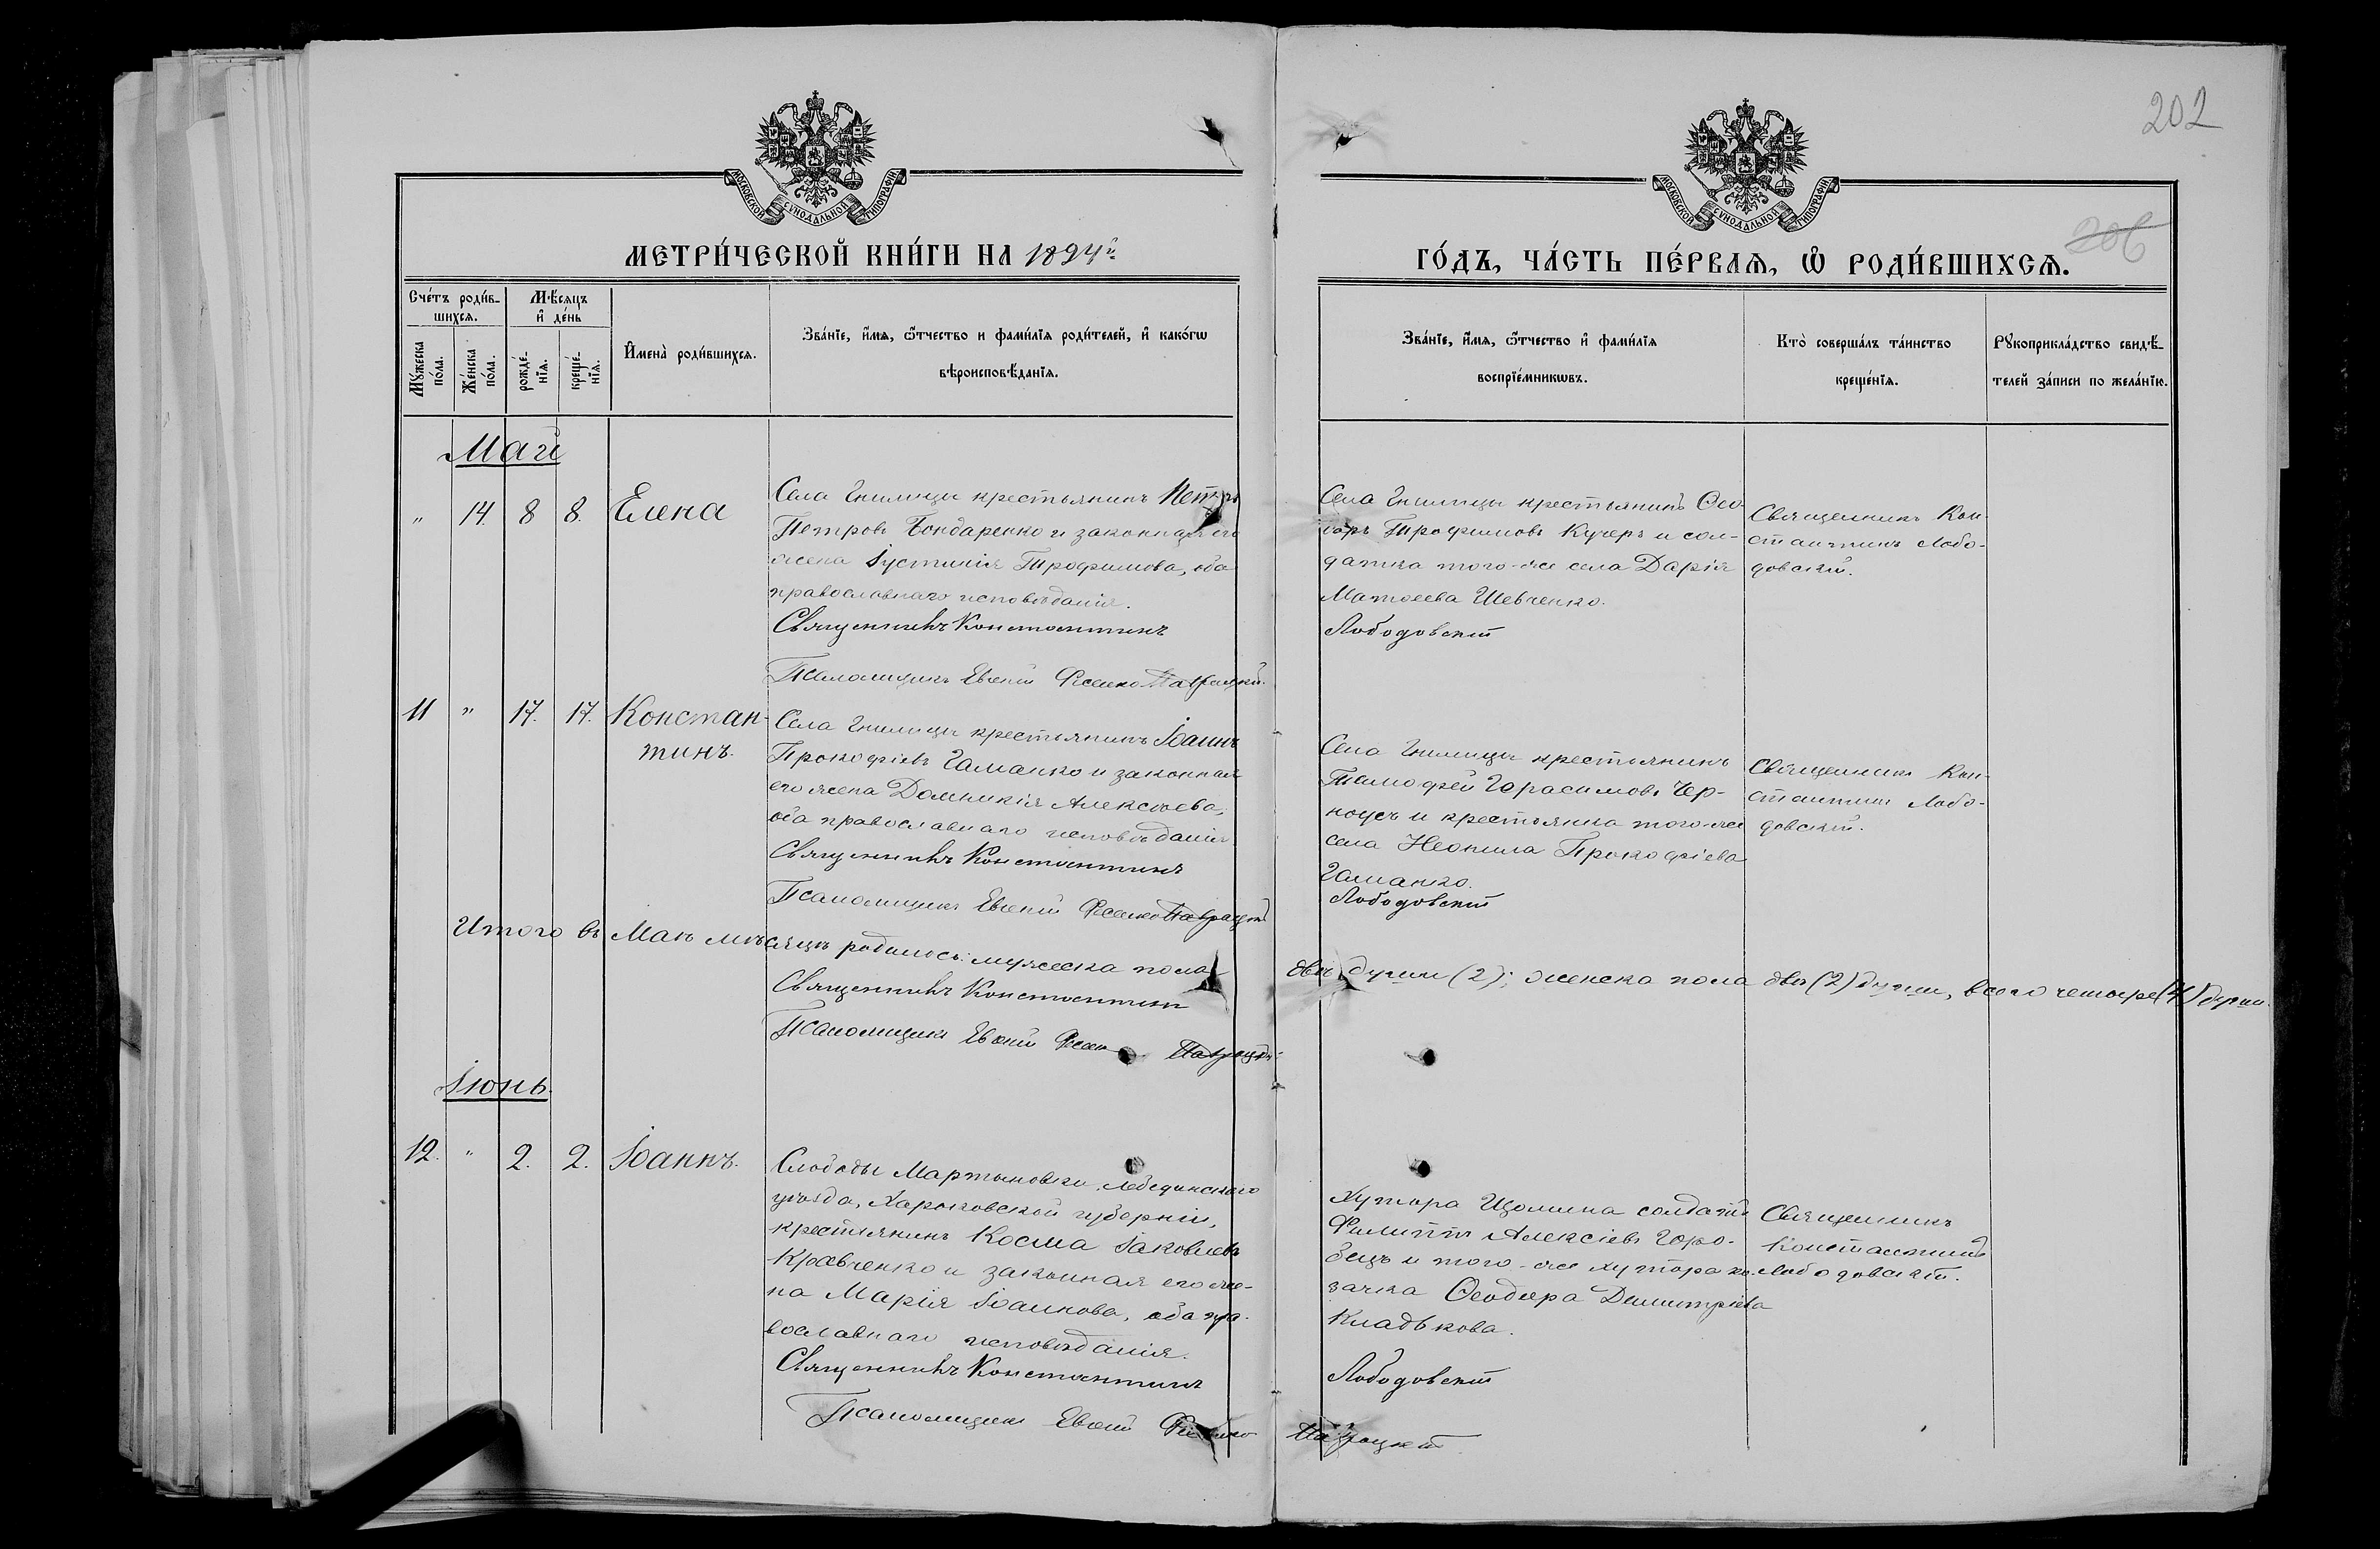 202
МОСКОВСКОЙ СѴНОДАЛЬНОЙ ТИПОГРАФІИ
МОСКОВСКОЙ СѴНОДАЛЬНОЙ ТИПОГРАФІИ
206
МЕТРИ́ЧЕСКОЙ КНИ́ГИ НА 1894й
ГО́ДЪ, ЧА́СТЬ ПЕ́РВАѦ, Ѡ҆ РОДИ́ВШИХСѦ.
Сче́тъ роди́в-
шихсѧ.
Мꙋ́жеска по́ла.
Же́нска по́ла.
Мѣ́сѧцъ
и҆ де́нь
рожде́-
нїѧ.
креще́-
нїѧ.
И҆мена̀ роди́вшихсѧ.
Зва́нїе, и҆́мѧ, ѻ҆́тчество и фами́лїѧ роди́телей, и҆ како́гѡ
вѣроисповѣ́данїѧ.
Зва́нїе, и҆́мѧ, ѻ҆́тчество и҆ фами́лїѧ
воспрїе́мникѡвъ.
Кто̀ соверша́лъ та́инство
креще́нїѧ.
Рꙋкоприкла́дство свидѣ́-
телей за́писи по жела́нїю.
Май
" 14. 8 8. Елена
Села Гнилицы крестьянинъ Петръ
Петровъ Бондаренко и законная его
жена Іустинія Трофимова, оба
православнаго исповѣданія.
Священникъ Константинъ
Псаломщикъ Евѳимій Ѳеденко
Села Гнилицы крестьянинъ Ѳео-
доръ Трофимовъ Кучеръ и сол-
датка того-же села Дарія
Матѳеева Шевченко.
Лободовскій
Священникъ Кон-
стантинъ Лобо-
довскій.
11 " 17. 17. Констан-
тинъ.
Села Гнилицы крестьянинъ Іоаннъ
Прокофіевъ Гаманко и законная
его жена Домникія Алексѣева,
оба православнаго исповѣданія
Священникъ Константинъ
Псаломщикъ
Села Гнилицы крестьянинъ
Тимофей Герасимовъ Чер-
ноусъ и крестьянка того-же
села Неонила Прокофіева
Гаманко.
Лободовскій
Священникъ Кон-
стантинъ Лобо-
довскій.
Итого въ Маѣ мѣсяцѣ родилось: мужеска пола двѣ души (2); женска пола двѣ (2) души, всего четыре (4) души.
Священникъ Константинъ
Псаломщикъ
Іюнь.
12. " 2. 2. Іоаннъ.
Слободы Мартыновки, Лебединскаго
уѣзда, Харьковской губерніи,
крестьянинъ Косма Іаковлевъ
Кравченко и законная его же-
на Марія Іоаннова, оба пра-
вославнаго исповѣданія.
Священникъ Константинъ
Псаломщикъ
Хутора Щомина солдатъ
Филиппъ Алексіевъ Горо-
бецъ и того-же хутора ка-
зачка Ѳеодора Димитріева
Кладькова.
Лободовскій
Священникъ
Константинъ
Лободовскій.